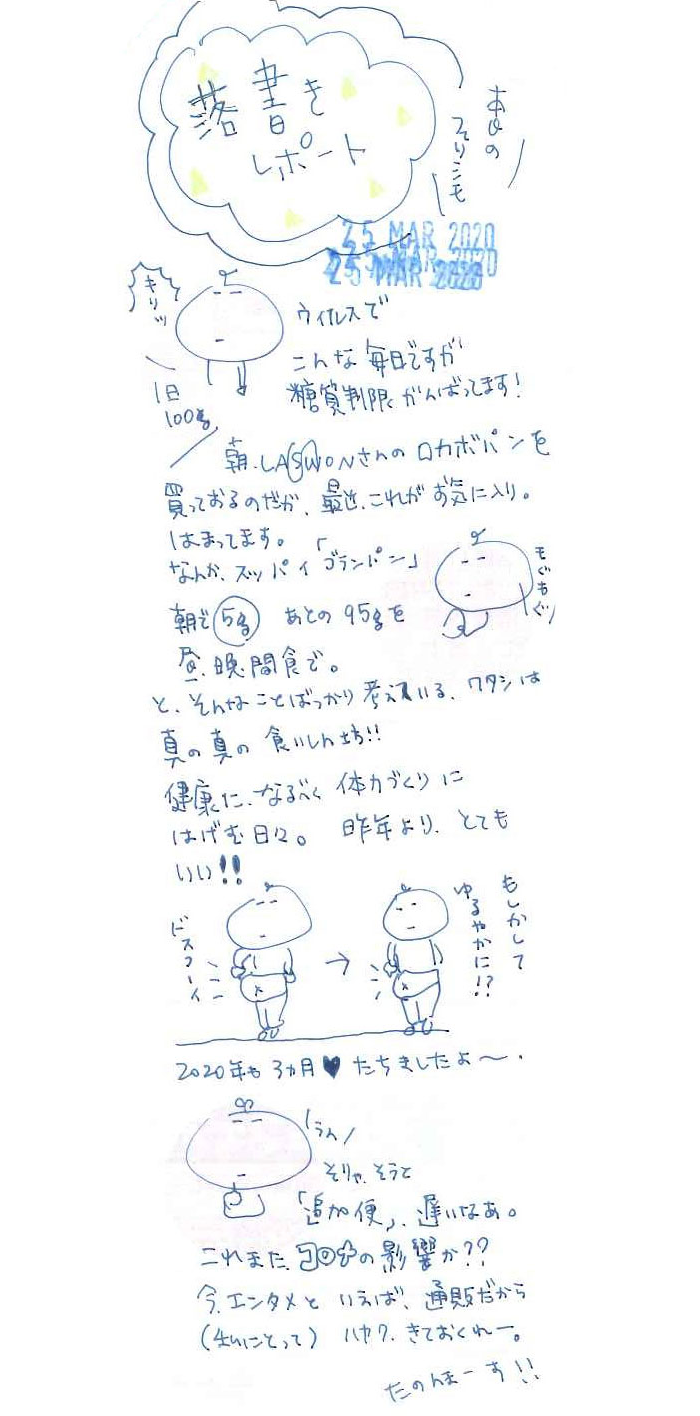 落書き
レポート
本日の
そりこも
25 MAR 2020
25 MAR 2020
25 MAR 2020
キリッ
ウイルスで
こんな毎日ですが
糖質制限がんばってます!
1日
100g
朝、LAWSONさんのロカボパンを
買っておるのだが、最近、これがお気に入り。
はまってます。
なんか、スッパイ「ブランパン」
もぐもぐ
朝で5g あとの95gを
昼、晩、間食で。
と、そんなことばっかり考えている、ワタシは
真の真の食いしん坊!!
健康に、なるべく体力づくりに
はげむ日々。 昨年より、とても
いい!!
ドスコーイ
→
もしかして
ゆるやかに!?
2020年も3ヵ月♥たちましたよ〜.
うん
そりゃ、そうと
「追加便」、遅いなあ。
これまた、コロナの影響か??
今、エンタメといえば、通販だから
(私にとって) ハヤク、きておくれー。
たのんまーす!!